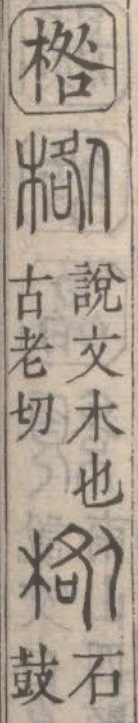 說文木也
古老切
石
鼓